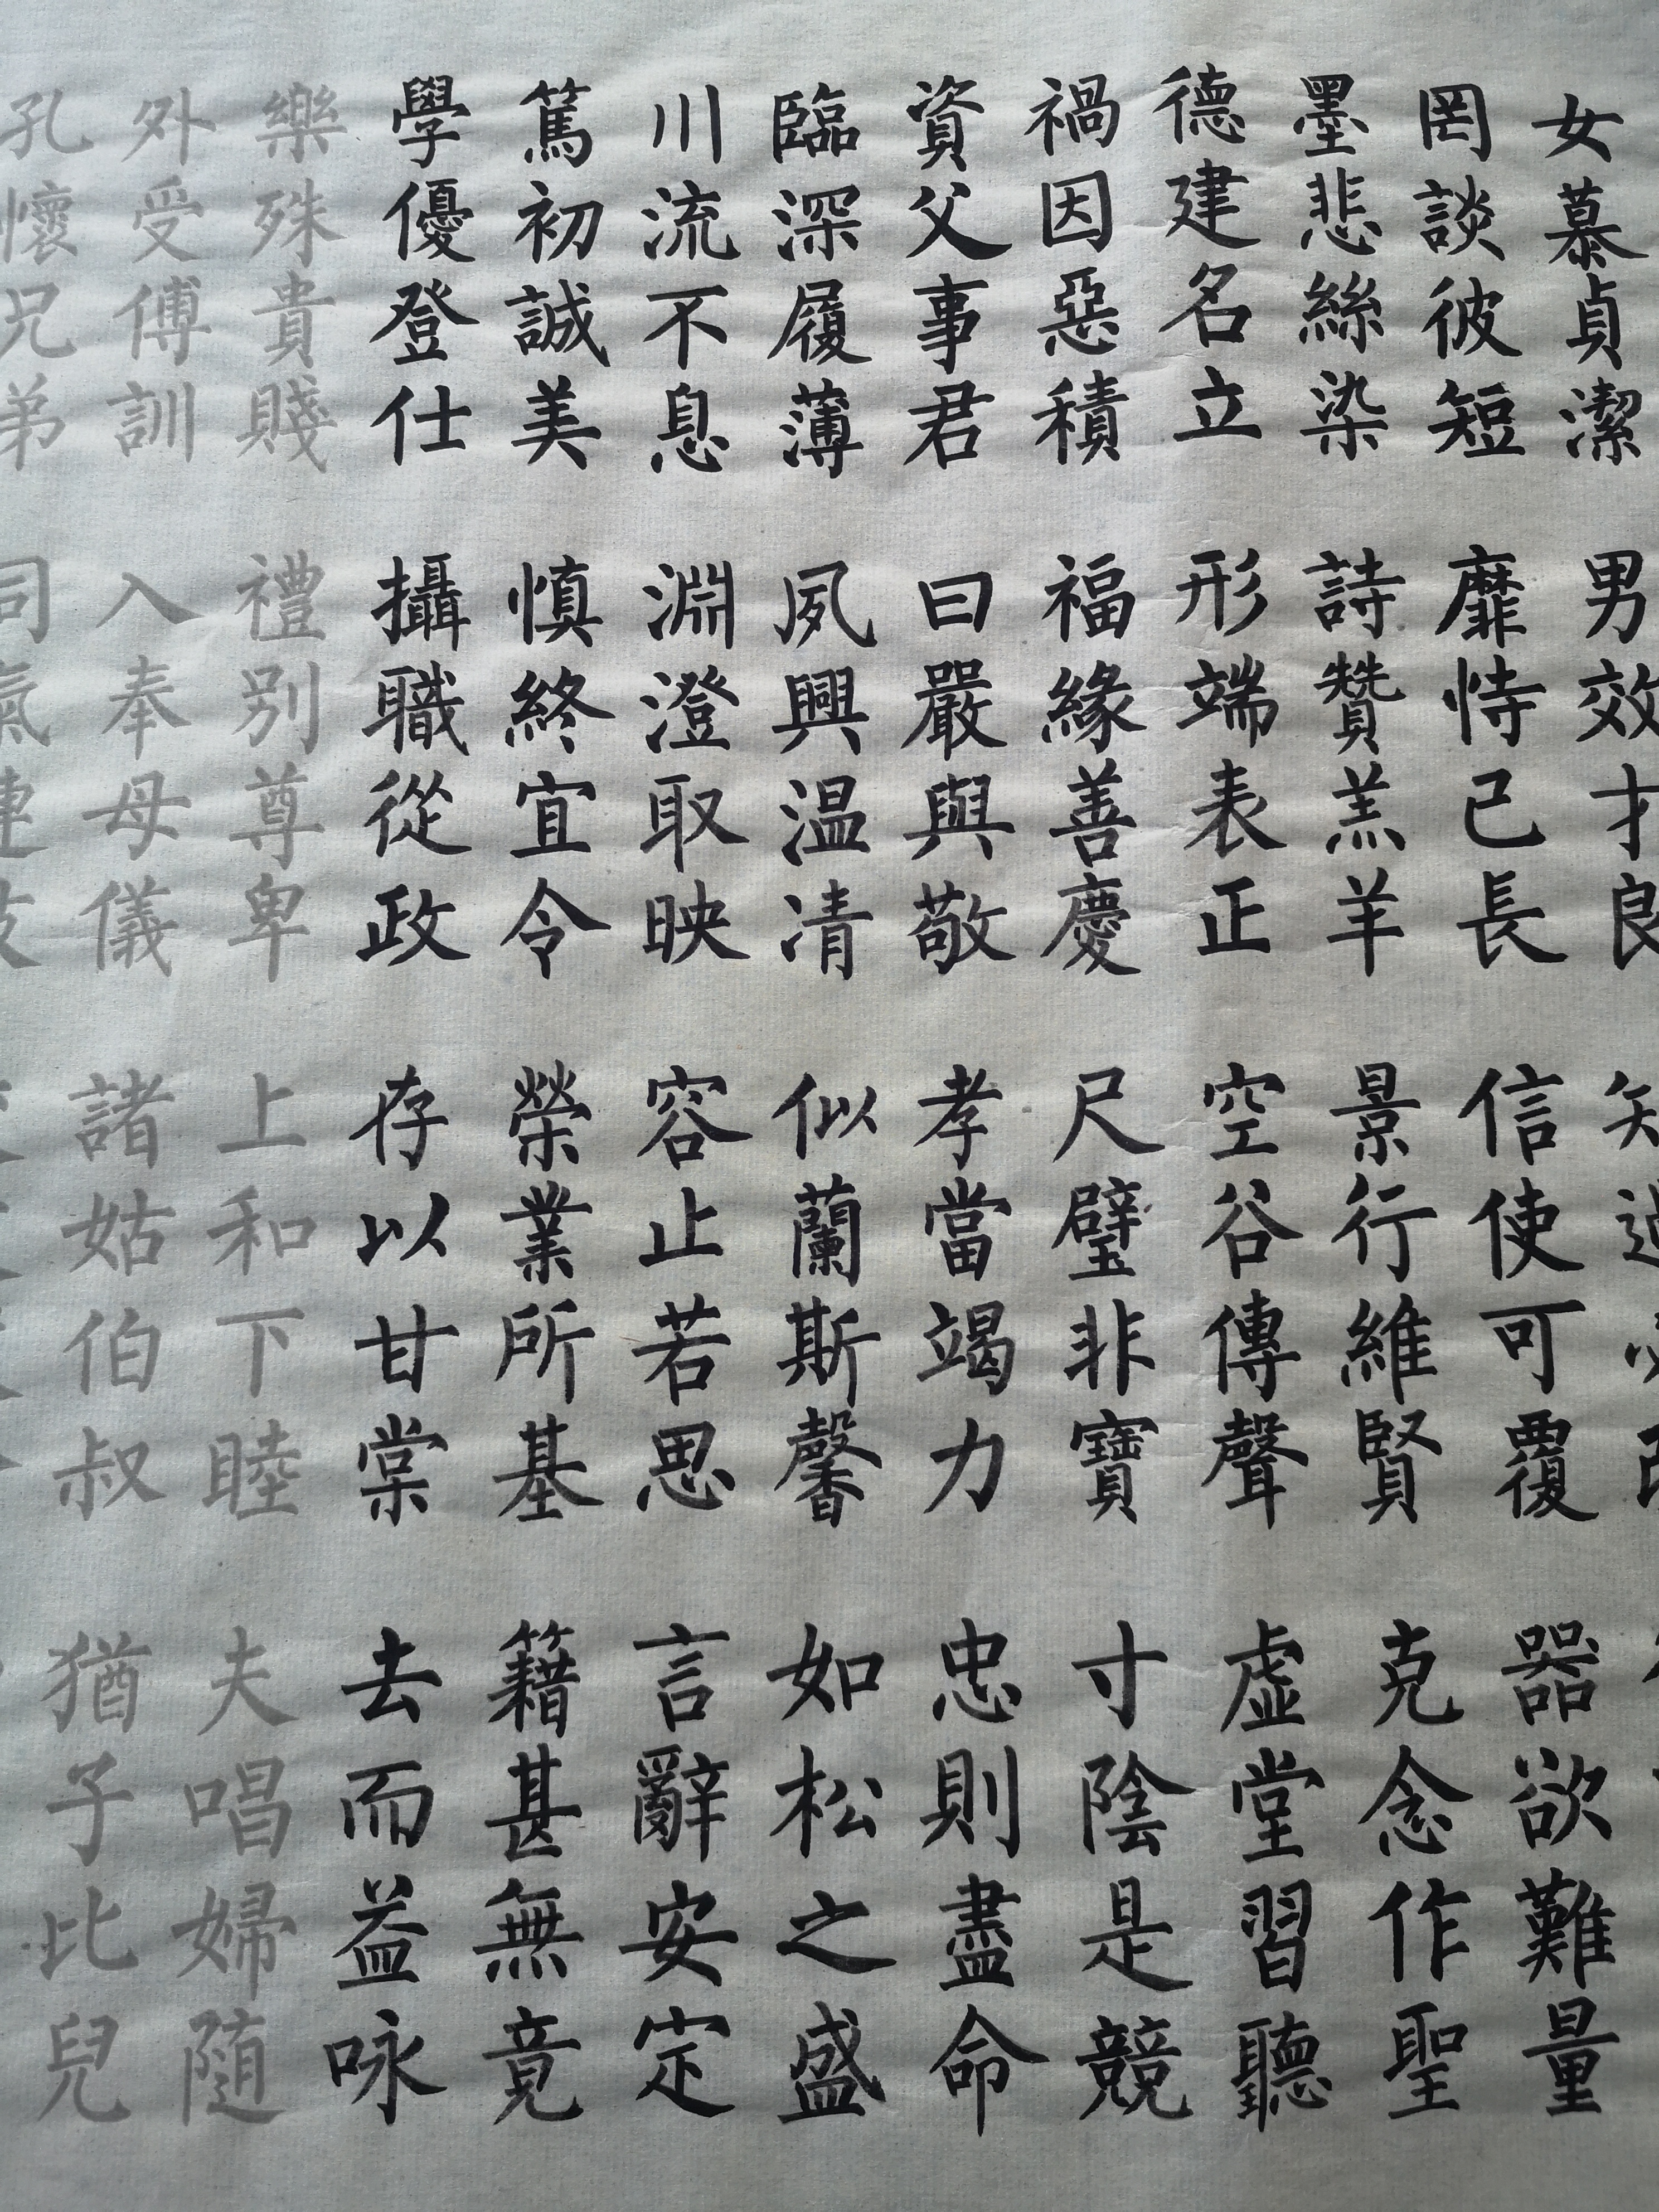 女慕貞潔 男效才良
罔談彼短 靡恃己長 信使可覆 器欲難量
墨悲絲染 詩贊羔羊 景行維賢 克念作聖
德建名立 形端表正 空谷傳聲 虛堂習聽
禍因惡積 福緣善慶 尺璧非寶 寸陰是競
資父事君 曰嚴與敬 孝當竭力 忠則盡命
臨深履薄 夙興温凊 似蘭斯馨 如松之盛
川流不息 淵澄取映 容止若思 言辭安定
篤初誠美 慎終宜令 榮業所基 籍甚無竟
學優登仕 攝職從政 存以甘棠 去而益咏
樂殊貴賤 禮别尊卑 上和下睦 夫唱婦随
外受傅訓 入奉母儀 諸姑伯叔 猶子比兒
孔懷兄弟 同氣